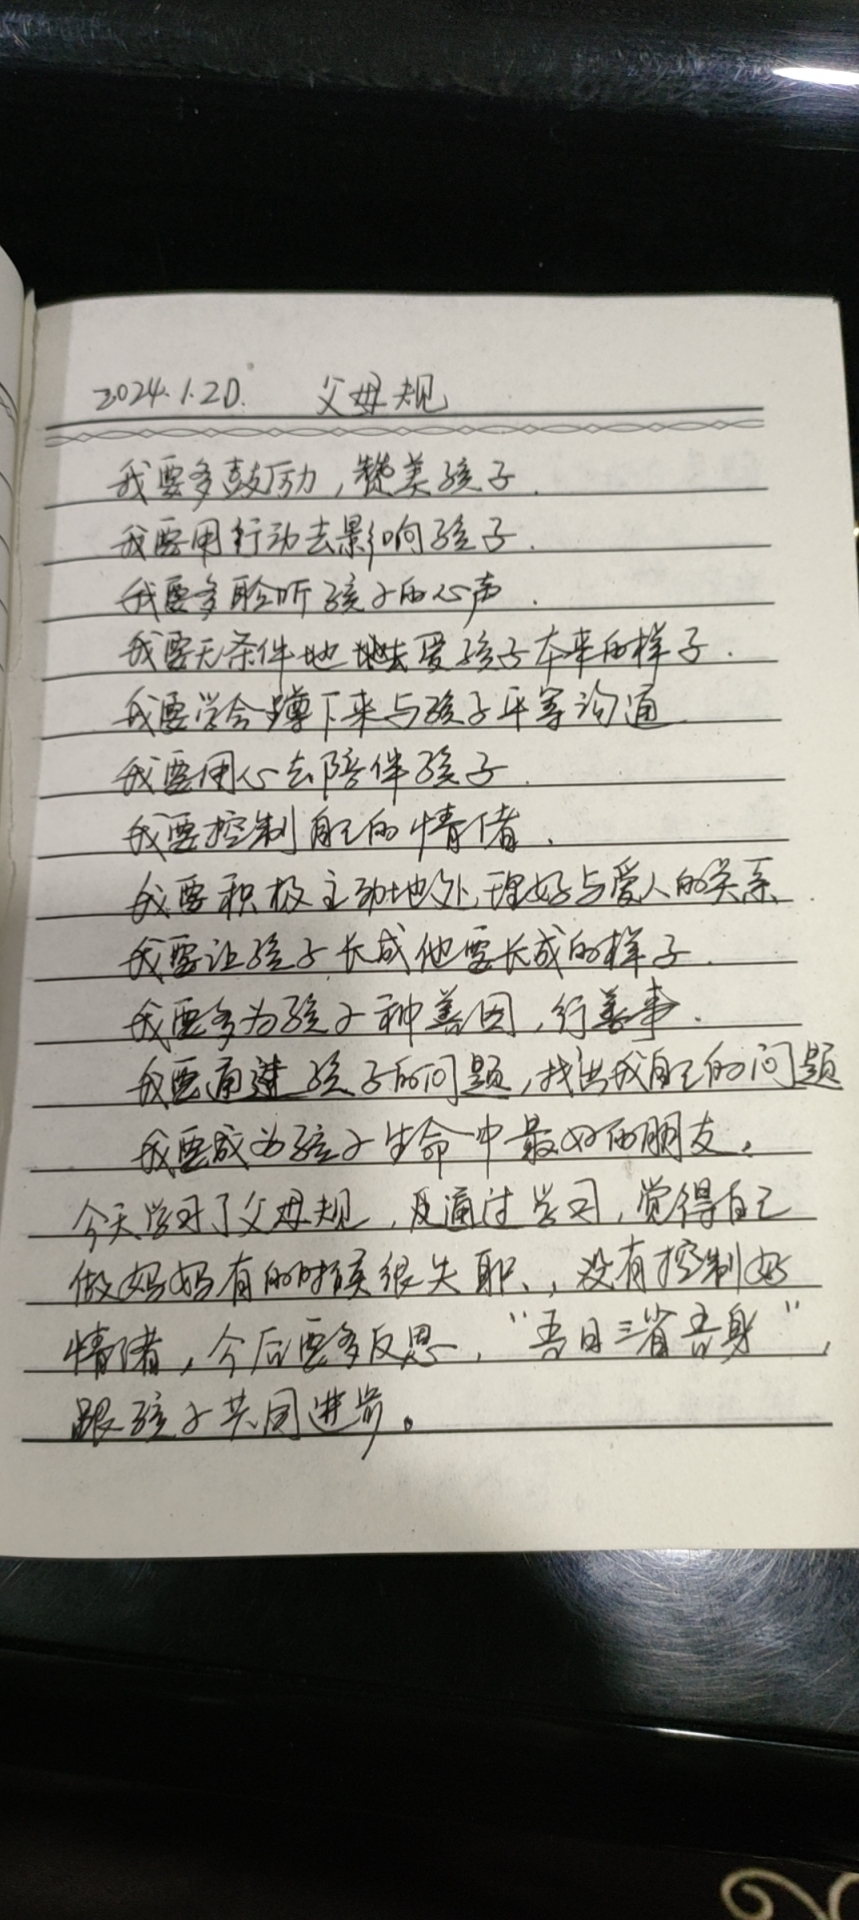 2024.1.20. 父母规
我要多鼓励,赞美孩子.
我要用行动去影响孩子.
我要多聆听孩子的心声.
我要无条件地去爱孩子本来的样子.
我要学会蹲下来与孩子平等沟通
我要用心去陪伴孩子.
我要控制自己的情绪.
我要积极主动地处理好与爱人的关系.
我要让孩子长成他要长成的样子.
我要多为孩子种善因,行善事.
我要通过孩子的问题,找出我自己的问题
我要成为孩子生命中最好的朋友。
今天学习了父母规,通过学习,觉得自己
做妈妈有的时候很失职、,没有控制好
情绪,今后要多反思,“吾日三省吾身”,
跟孩子共同进步。